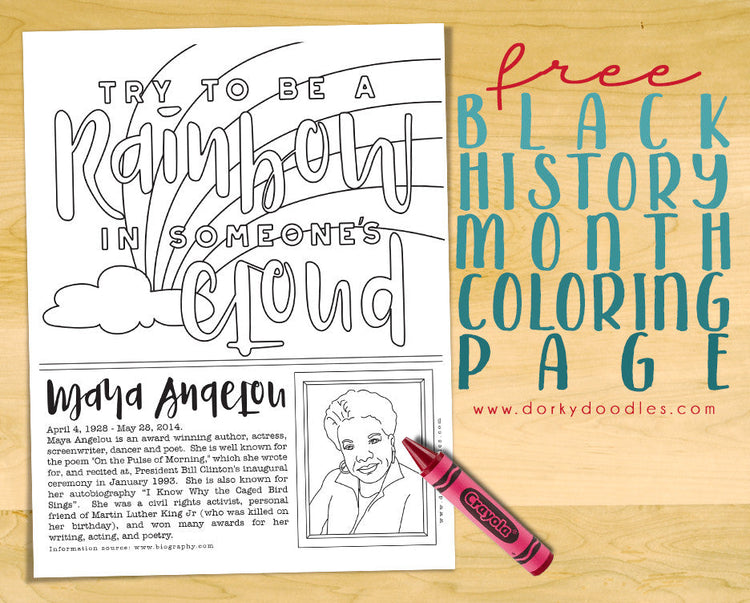 TRY TO BE A
Rainbow
IN SOMEONE'S
Cloud
Maya Angelou
April 4, 1928 - May 28, 2014.
Maya Angelou is an award winning author, actress,
screenwriter, dancer and poet. She is well known for
the poem "On the Pulse of Morning," which she wrote
for, and recited at, President Bill Clinton's inaugural
ceremony in January 1993. She is also known for
her autobiography "I Know Why the Caged Bird
Sings". She was a civil rights activist, personal
friend of Martin Luther King Jr (who was killed on
her birthday), and won many awards for her
writing, acting, and poetry.
Information source: www.biography.com
free
BLACK
HISTORY
MONTH
COLORING
PAGE
www.dorkydoodles.com
Crayola